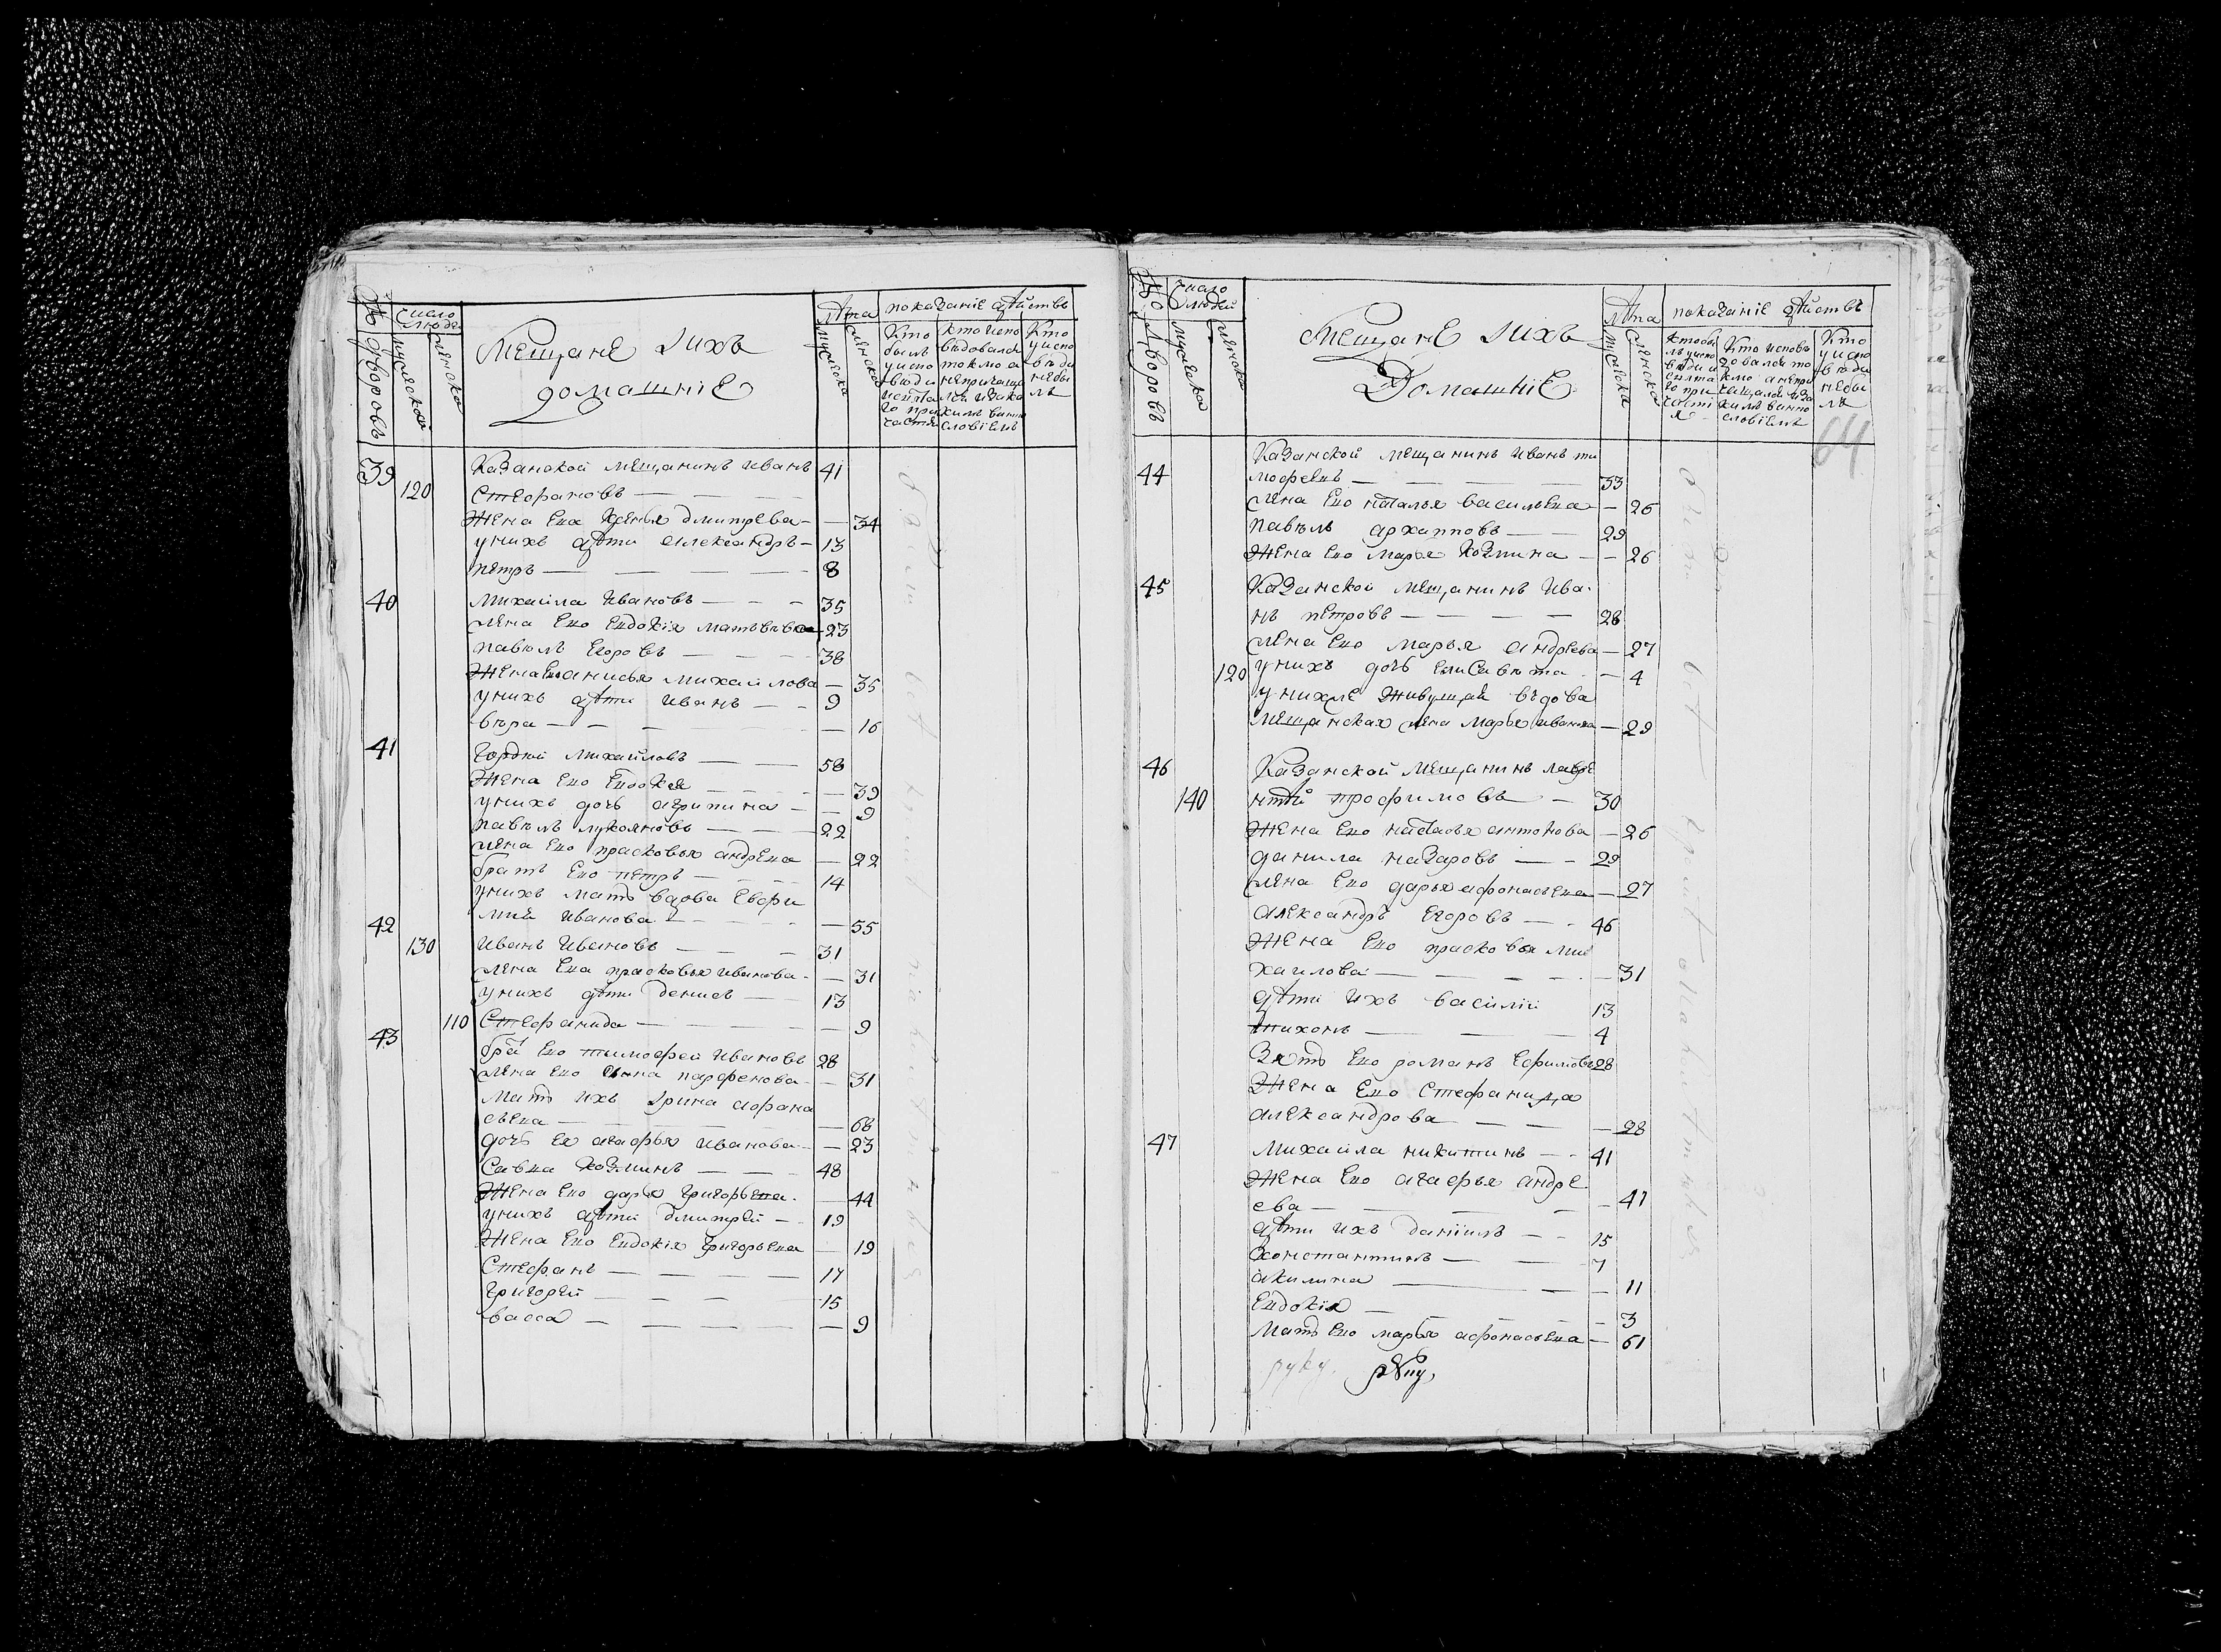 № дворовъ
число людей
мужеска
женска
Мещане и ихъ
домашніе
лѣта
мужеска
женска
показаніе дѣйствъ
Кто былъ у исповѣди и с҃та го при частія
Кто исповѣдовался токмо а не причащался и за какимъ винословіемъ
Кто у исповѣди не былъ
39 Казанской мещанинъ Иванъ 41
120 Стефановъ — — —
Жена Ева Ксенья Дмитрева — — 34
у нихъ дѣти Александръ — 13
Петръ — — — — 8
40 Михаила Ивановъ — — — 35
жена Ево Евдокія Матвѣвна — 23
Павелъ Егоровъ — — — 38
Жена Ево Анисья Михаилова — 35
у нихъ дѣти Иванъ — — 9
Вѣра — — — — 16
41 Гордѣй Михайловъ — — 58
Жена Ево Евдокея — — — 39
у нихъ дочь Агрипина — — 9
Павелъ Лукояновъ — — — 22
жена Ево Прасковья Андревна — 22
братъ Ево Петръ — — — 14
у нихъ мать вдова Евфи
42 мия Иванова — — — — 55
130 Иванъ Ивановъ — — — 31
жена Ева Прасковья Иванова — — 31
у нихъ дѣти Денисъ — — 13
110 Стефанида — — — — — 9
43 бра Ево Тимофей Ивановъ 28
жена Ево Анна Парфенова — — 31
Мать ихъ Ирина Афона
сьевна — — — — 68
дочь Ея Агафья Иванова — — 23
Савва Козминъ — — — 48
Жена Ево Дарья Григорьевна — — 44
у нихъ дѣти Дмитрей — — 19
Жена Ево Евдокія Григорьевна — 19
Стефанъ — — — — 17
Григорей — — — — 15
Васса — — — — — 9
№ дворовъ
число людей
мужеска
женска
Мещане и ихъ
Домашніе
лѣта
мужеска
женска
показаніе дѣйствъ
Кто былъ у исповѣди и с҃та го причастія
Кто исповѣдовался токмо а не причащался и за какимъ винословіемъ
Кто у исповѣди не былъ
64
Казанской мещанинъ Иванъ Ти
44 мофеевъ — — — — 33
жена Ево Наталья Васильевна — 26
Павелъ Архиповъ — — 29
Жена Ево Марья Козмина — — 26
45 Казанской мещанинъ Ива
нъ Петровъ — — — — 28
жена Ево Марья Андреева — 27
120 у нихъ дочь Елисавета — — 4
у нихже живущая вдова
мещанская жена Марья Иванова — 29
46 Казанской мещанинъ Лавре
140 нтій Трофимовъ — 30
Жена Ево Наталья Антонова — 26
Данила Назаровъ — — 29
жена Ево Дарья Афонасьевна — 27
Александръ Егоровъ — — 46
Жена Ево Прасковья Ми
хаилова — — — — — 31
дѣти ихъ Василій 13
Тихонъ — — — 4
Зять Ево Романъ Ефимовъ 28
Жена Ево Стефанида
Александрова — — — 28
47 Михаила Никитинъ — — 41
Жена Ево Агафья Андре
ева — — — — — 41
дѣти ихъ Даніилъ — — 15
Константинъ — — 7
Акилина — — — 11
Евдокія — — — — 3
Мать Ево Марья Афонасьевна — 61
руку